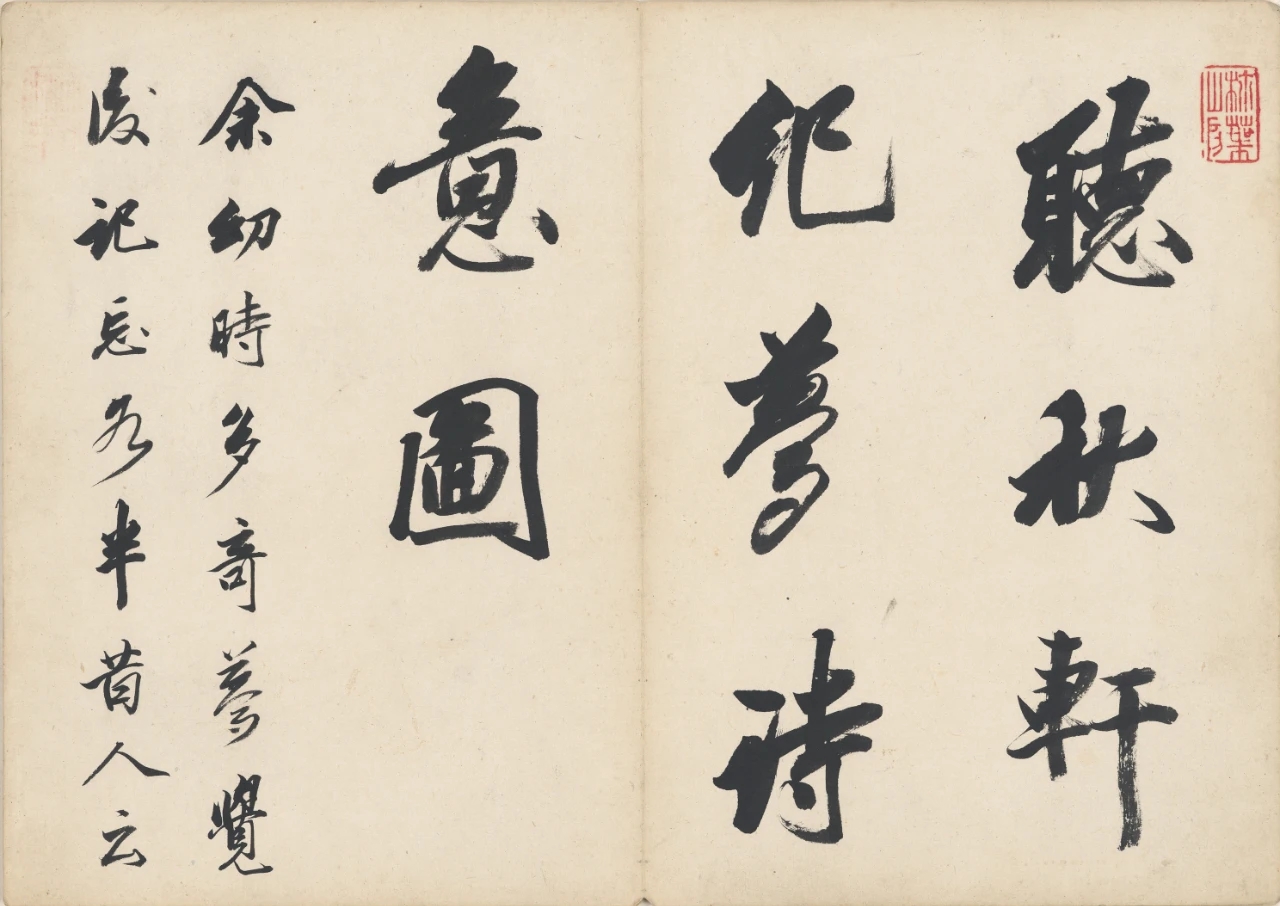 聽秋軒
紀夢詩
意圖
余幼時多奇夢覺
後記忘各半昔人云